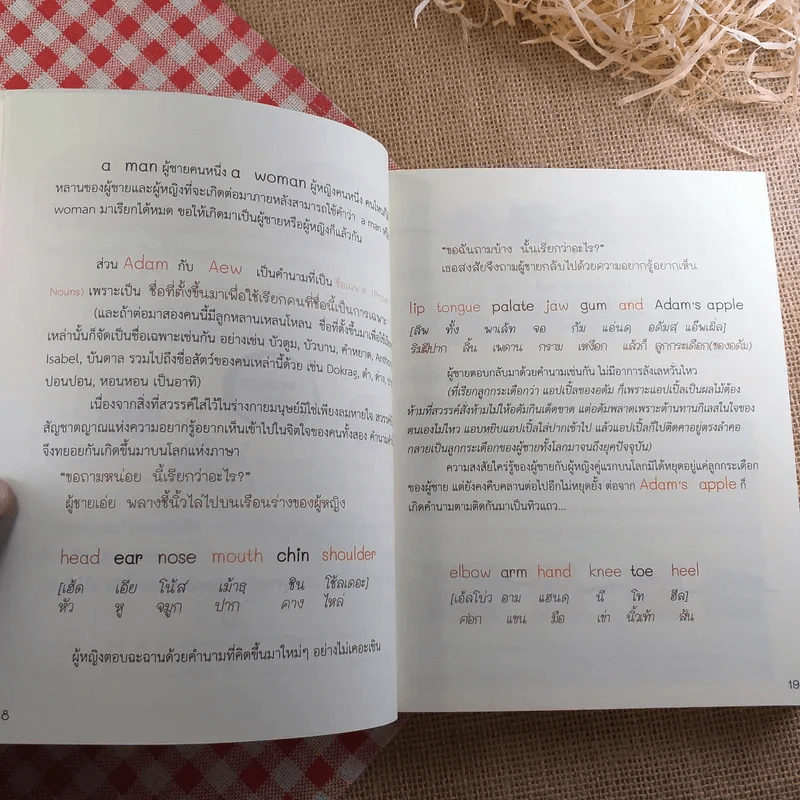 a man ผู้ชายคนหนึ่ง a woman ผู้หญิงคนหนึ่ง
หลานของผู้ชายและผู้หญิงที่จะเกิดต่อมาภายหลังสามารถใช้คำว่า a man
woman มาเรียกได้หมด ขอให้เกิดมาเป็นผู้ชายหรือผู้หญิงก็แล้วกัน
ส่วน Adam กับ Aew เป็นคำนามที่เป็น ชื่อเฉพาะ
Nouns) เพราะเป็น ชื่อที่ตั้งขึ้นมาเพื่อใช้เรียกคนที่ชื่อนี้เป็นการเฉพาะ
(และถ้าต่อมาสองคนนี้มีลูกหลานเหลนโหลน ชื่อที่ตั้งขึ้นมาเพื่อใช้
เหล่านั้นก็จัดเป็นชื่อเฉพาะเช่นกัน อย่างเช่น บัวตูม, บัวบาน, คำหยาด,
Isabel, บันดาล รวมไปถึงชื่อสัตว์ของคนเหล่านี้ด้วย เช่น Dokrag, ดำ, ด่าง,
ปอนปอน, หอนหอน เป็นอาทิ)
เนื่องจากสิ่งที่สวรรค์ใส่ไว้ในร่างกายมนุษย์มิใช่เพียงลมหายใจ
สัญชาตญาณแห่งความอยากรู้อยากเห็นเข้าไปในจิตใจของคนทั้งสอง
จึงทยอยกันเกิดขึ้นมาบนโลกแห่งภาษา
“ขอถามหน่อย นี้เรียกว่าอะไร?”
ผู้ชายเอ่ย พลางชี้นิ้วไล่ไปบนเรือนร่างของผู้หญิง
head ear nose mouth chin shoulder
[เฮ้ด เอีย โน้ส เม้าธฺ ชิน โช้ลเดอะ]
หัว หู จมูก ปาก คาง ไหล่
ผู้หญิงตอบฉะฉานด้วยคำนามที่คิดขึ้นมาใหม่ๆ อย่างไม่เคอะเขิน
8
“ขอฉันถามบ้าง นั้นเรียกว่าอะไร?”
เธอสงสัยจึงถามผู้ชายกลับไปด้วยความอยากรู้อยากเห็น
lip tongue palate jaw gum and Adam's apple
[ลิพ ทั้ง พาเล้ท จอ กัม แอ่นดฺ อดัมสฺ แอ๊พเผิ่ล]
ริมฝีปาก ลิ้น เพดาน กราม เหงือก แล้วก็ ลูกกระเดือก(ของอดัม)
ผู้ชายตอบกลับมาด้วยคำนามเช่นกัน ไม่มีอาการลังเลหวั่นไหว
(ที่เรียกลูกกระเดือกว่า แอปเปิ้ลของอดัม ก็เพราะแอปเปิ้ลเป็นผลไม้ต้อง
ห้ามที่สวรรค์สั่งห้ามไม่ให้อดัมกินเด็ดขาด แต่อดัมพลาดเพราะต้านทานกิเลสในใจของ
ตนเองไม่ไหว แอบหยิบแอปเปิ้ลใส่ปากเข้าไป แล้วแอปเปิ้ลก็ไปติดคาอยู่ตรงลำคอ
กลายเป็นลูกกระเดือกของผู้ชายทั้งโลกมาจนถึงยุคปัจจุบัน)
ความสงสัยใคร่รู้ของผู้ชายกับผู้หญิงคู่แรกบนโลกมิได้หยุดอยู่แค่ลูกกระเดือก
ของผู้ชาย แต่ยังคงคืบคลานต่อไปอีกไม่หยุดยั้ง ต่อจาก Adam's apple ก็
เกิดคำนามตามติดกันมาเป็นทิวแถว...
elbow arm hand knee toe heel
[เอ้ลโบ่ว อาม แฮนดฺ นี โท ฮีล]
ศอก แขน มือ เข่า นิ้วเท้า ส้น
19